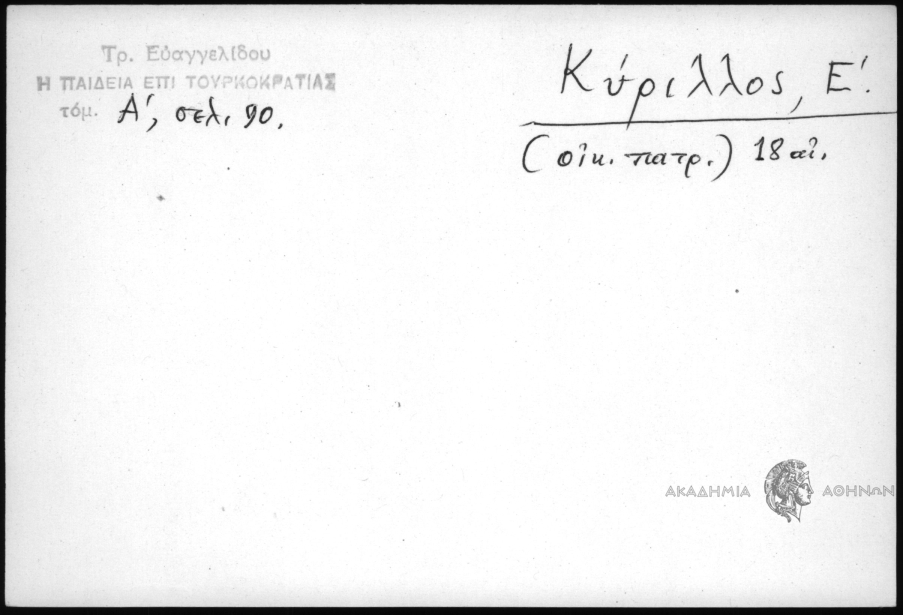 Τρ. Εὐαγγελίδου
Η ΠΑΙΔΕΙΑ ΕΠΙ ΤΟΥΡΚΟΚΡΑΤΙΑΣ
τόμ. Α΄, σελ. 90.
Κύριλλος, Ε΄.
(οἰκ. πατρ.) 18 αἰ.
ΑΚΑΔΗΜΙΑ ΑΘΗΝΩΝ